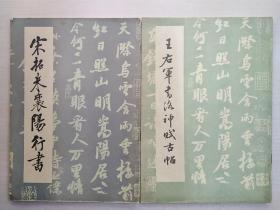 宋拓米襄陽行書
天際烏雲含雨重樓前
紅日照山明嵩陽居士
今何在青眼看人萬里情
王右軍書洛神賦古帖
天際烏雲含雨重樓前
紅日照山明嵩陽居士
今何在青眼看人萬里情